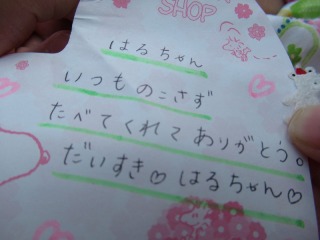 SHOP
はるちゃん
いつものこさず
たべてくれてありがとう。
だいすき♡はるちゃん♡